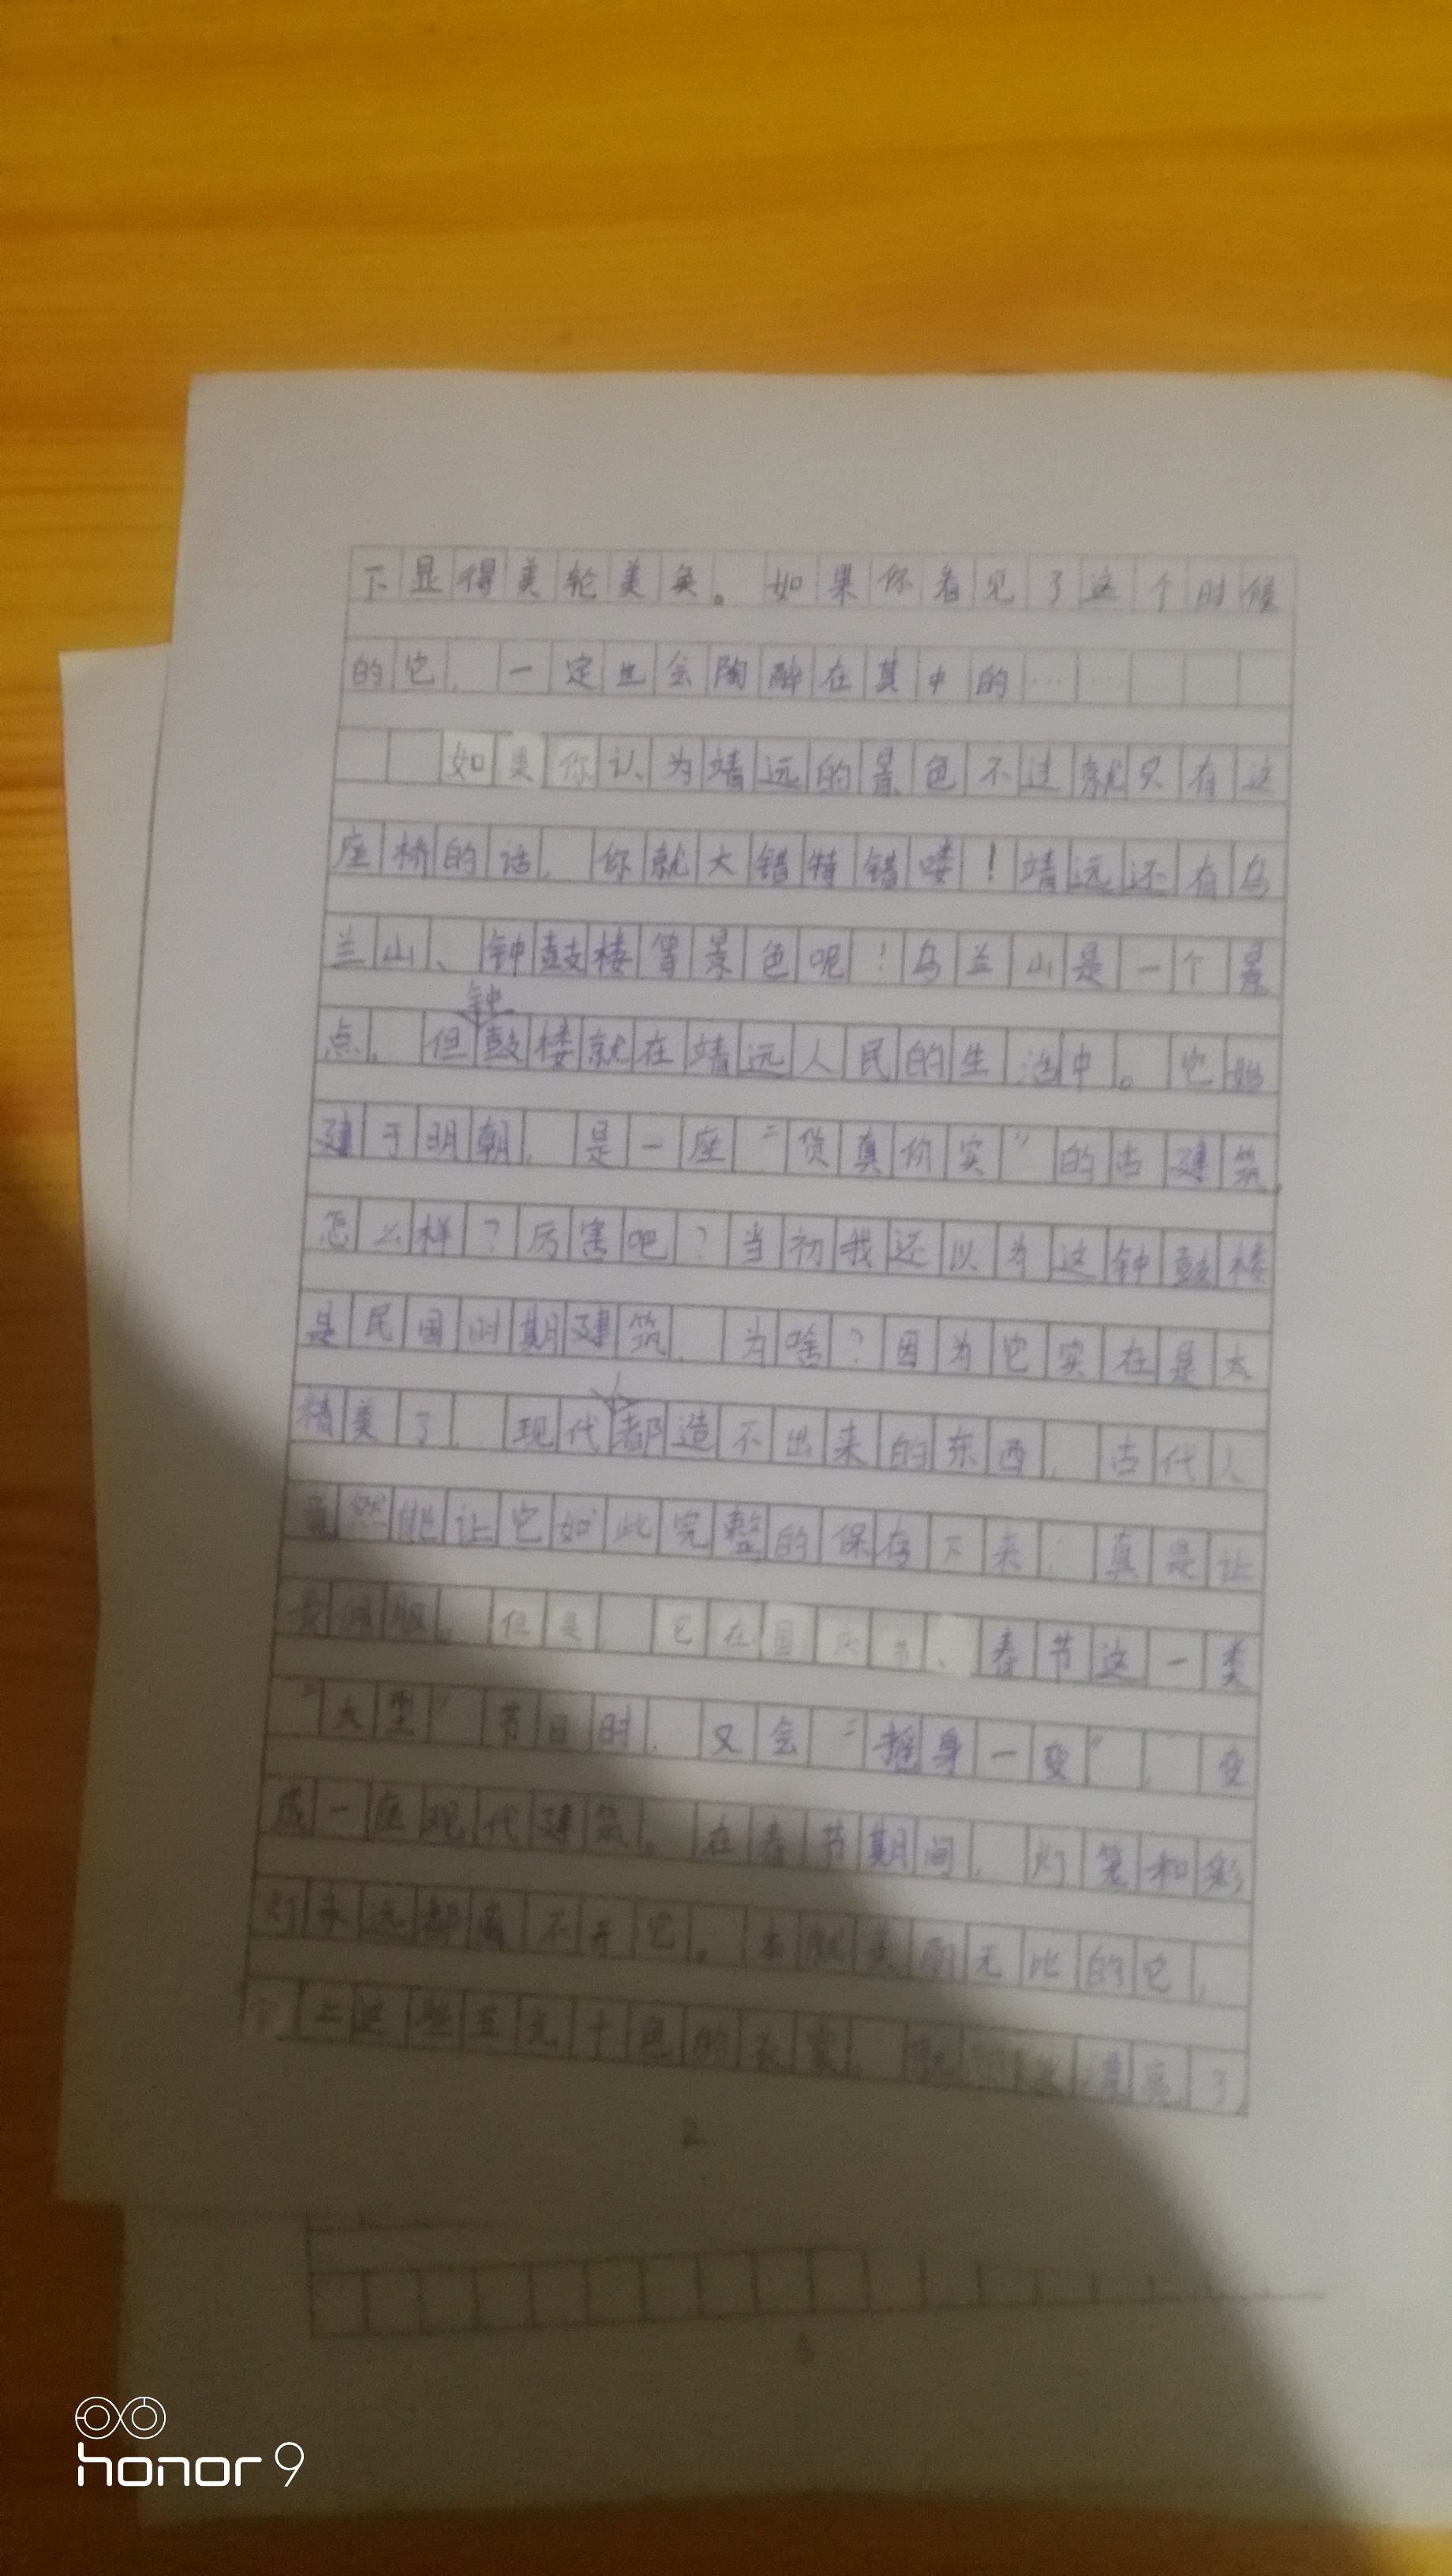 下显得美轮美奂。如果你看见了这个时候
的它,一定也会陶醉在其中的……
如果你认为靖远的景色不过就只有这
座桥的话,你就大错特错喽!靖远还有乌
兰山、钟鼓楼等景色呢!乌兰山是一个景
点,但钟鼓楼就在靖远人民的生活中。它始
建于明朝,是一座“货真价实”的古建筑,
怎么样?厉害吧?当初我还以为这钟鼓楼
是民国时期建筑,为啥?因为它实在是太
精美了,现代人都造不出来的东西,古代人
竟然能让它如此完整的保存下来,真是让
但是,它在国庆节、春节这一类
“大型”节日时,又会“摇身一变”,变
成一座现代建筑。在春节期间,灯笼和彩
灯永远都离不开它。本就美丽无比的它,
上这些五光十色的衣裳,漂亮了
2
3
honor 9